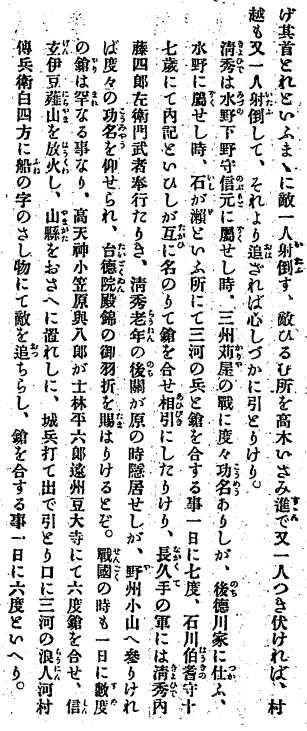 げ其首とれといふまゝに敵一人射倒す、敵ひるむ所を高木いさみ進で又一人つき伏ければ、村
越も又一人射倒して、それより追ざれば心しづかに引とりけり。
清秀は水野下野守信元に屬せし時、三州苅屋の戰に度々功名ありしが、後德川家に仕ふ、
水野に屬せし時、石が瀨といふ所にて三河の兵と鎗を合する事一日に七度、石川伯耆守十
七歲にて内記といひしが互に名のりて鎗を合せ相引にしたりけり、長久手の軍には淸秀内
藤四郎左衞門武者奉行たりき、淸秀老年の後關が原の時隱居せしが、野州小山へ參りけれ
ば度々の功名を仰せられ、台德院殿錦の御羽折を賜はりけるとぞ。戰國の時も一日に數度
の鎗は罕なる事なり、高天神小笠原與八郎が士林平六郎遠州豆大寺にて六度鎗を合せ、信
玄伊豆薤山を放火し、山縣をおさへに置れしに、城兵打て出で引とり口に三河の浪人河村
傳兵衞白四方に船の字のさし物にて敵を追ちらし、鎗を合する事一日に六度といへり。